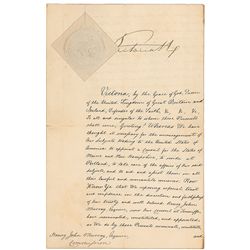 Victoria R
Victoria, by the Grace of God, Queen
of the United Kingdom of Great Britain and
Ireland, Defender of the Faith, &c, &c, &c,
To all and singular to whom these Presents
shall come, Greeting! Whereas We have
thought it necessary for the encouragement of
Our Subjects trading to the United States of
America to appoint a Consul for the States of
Maine and New Hampshire, to reside at
Portland, to take care of the affairs of Our said
Subjects, and to aid and assist them in all
their lawful and mercantile concerns. Now
Know Ye that We reposing especial trust
and confidence in the discretion and faithfulness
of Our trusty and well beloved Henry John
Murray, Esquire, now Our Consul at
have nominated, constituted, and appointed,
as We do by these Presents nominate, constitute,
and
Henry John Murray, Esquire,
Commission